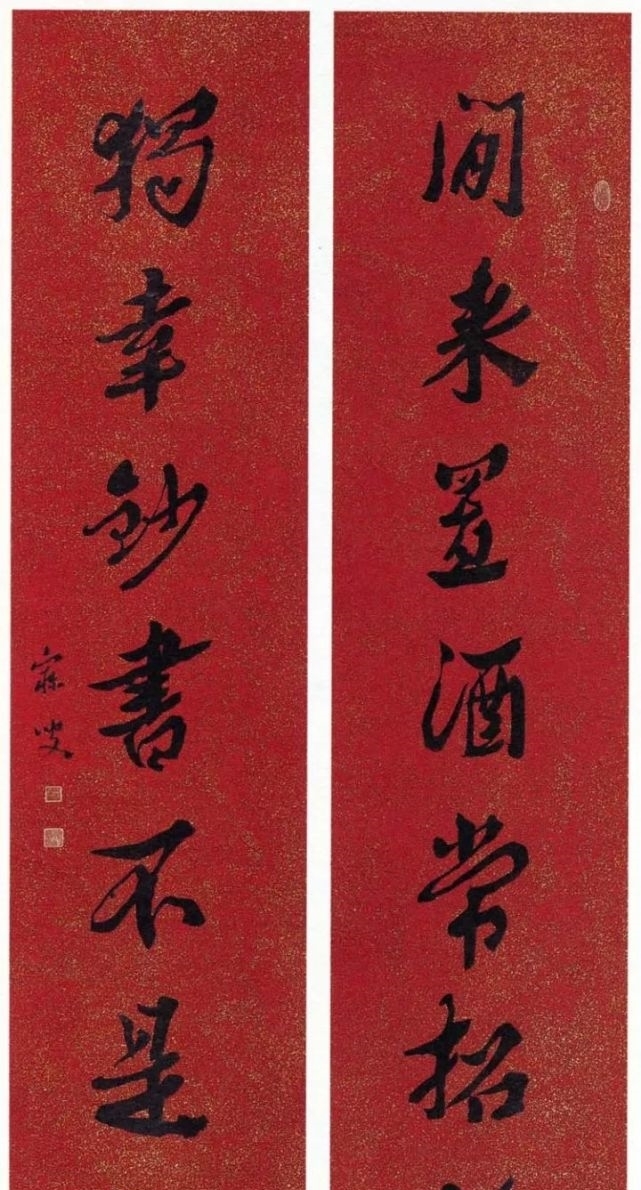 閒来置酒常招
獨幸鈔書不是
寐叟